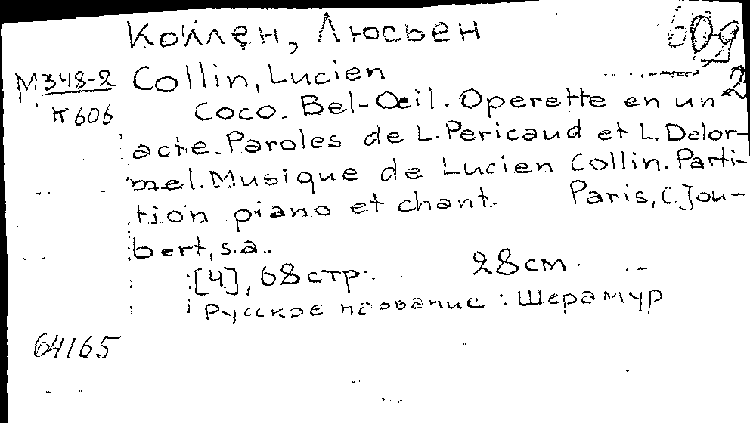 Коллен, Люсьен
609
2
М348-2 Collin, Lucien
К606 Coco. Bel-Œil. Operette en un
acte. Paroles de L. Pericaud et L. Delor-
mel. Musique de Lucien Collin. Parti-
tion piano et chant. Paris, C. Jou-
bert, s.a..
[4], 68 стр. 28 см.
Русское название: Шерамур
64165